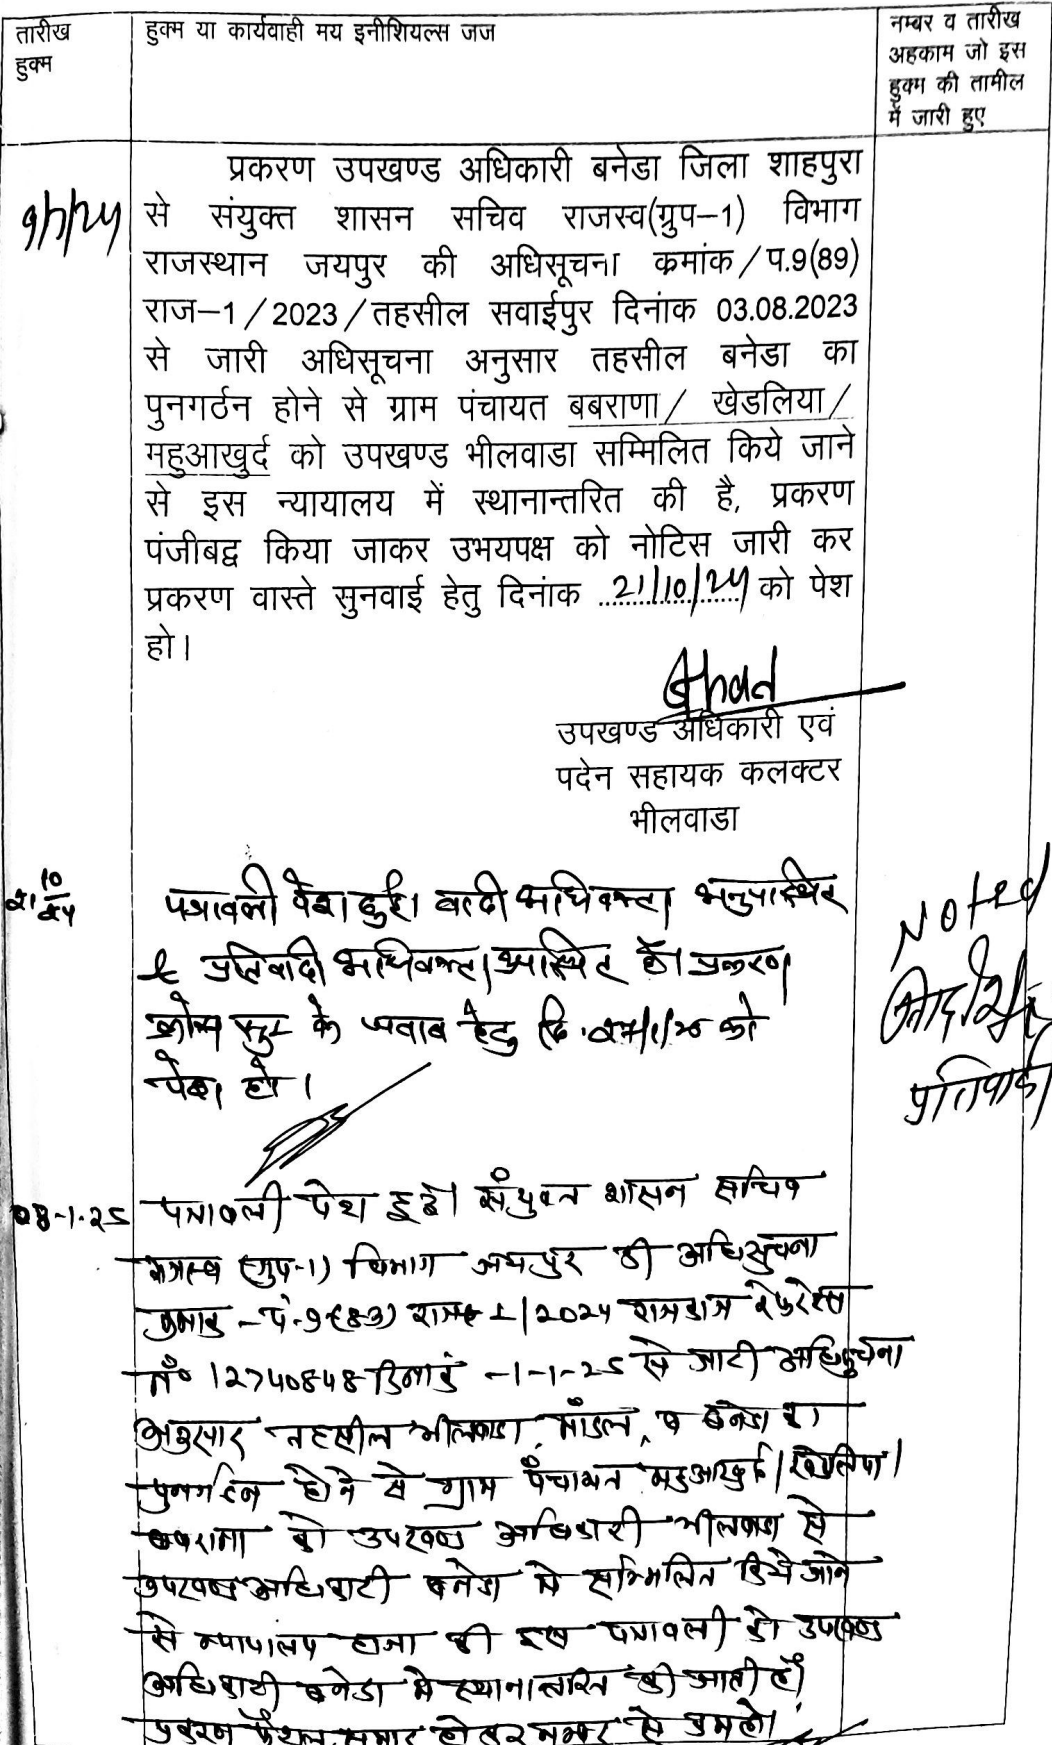 तारीख
हुक्म
हुक्म या कार्यवाही मय इनीशियल्स जज
नम्बर व तारीख
अहकाम जो इस
हुक्म की तामील
में जारी हुए
प्रकरण उपखण्ड अधिकारी बनेडा जिला शाहपुरा
9/7/24
से संयुक्त शासन सचिव राजस्व(ग्रुप–1) विभाग
राजस्थान जयपुर की अधिसूचना कमांक/प.9(89)
राज–1/2023/तहसील सवाईपुर दिनांक 03.08.2023
से जारी अधिसूचना अनुसार तहसील बनेडा का
पुनगर्ठन होने से ग्राम पंचायत बबराणा/ खेडलिया/
महुआखुर्द को उपखण्ड भीलवाडा सम्मिलित किये जाने
से इस न्यायालय में स्थानान्तरित की है, प्रकरण
पंजीबद्व किया जाकर उभयपक्ष को नोटिस जारी कर
प्रकरण वास्ते सुनवाई हेतु दिनांक 21/10/24 को पेश
हो।
उपखण्ड अधिकारी एवं
पदेन सहायक कलक्टर
भीलवाडा
21 10/24
पत्रावली पेश हुई। वादी अधिवक्ता अनुपस्थित
प्रतिवादी अधिवक्ता उपस्थित है। प्रकरण
के जवाब हेतु दि. 27/1/25 को
पेश हो।
Noted
प्रतिवादी
08-1-25
पत्रावली पेश हुई। संयुक्त शासन सचिव
राजस्व (ग्रुप-1) विभाग जयपुर की अधिसूचना
क्रमांक -प.9(83) राज-1/2024 राजकाज रेफरेंस
नं० 12740848 दिनांक -1-1-25 से जारी अधिसूचना
अनुसार तहसील भीलवाडा, मांडल, व बनेडा का
पुनर्गठन होने से ग्राम पंचायत महुआखुर्द/खेडलिया/
बबराणा को उपखण्ड अधिकारी भीलवाडा से
उपखण्ड अधिकारी बनेडा मे सम्मिलित किये जाने
से न्यायालय हाजा की इस पत्रावली को उपखण्ड
अधिकारी बनेडा मे स्थानान्तरित की जाती है।
प्रकरण फैसल शुमार होकर नम्बर से कम हो।